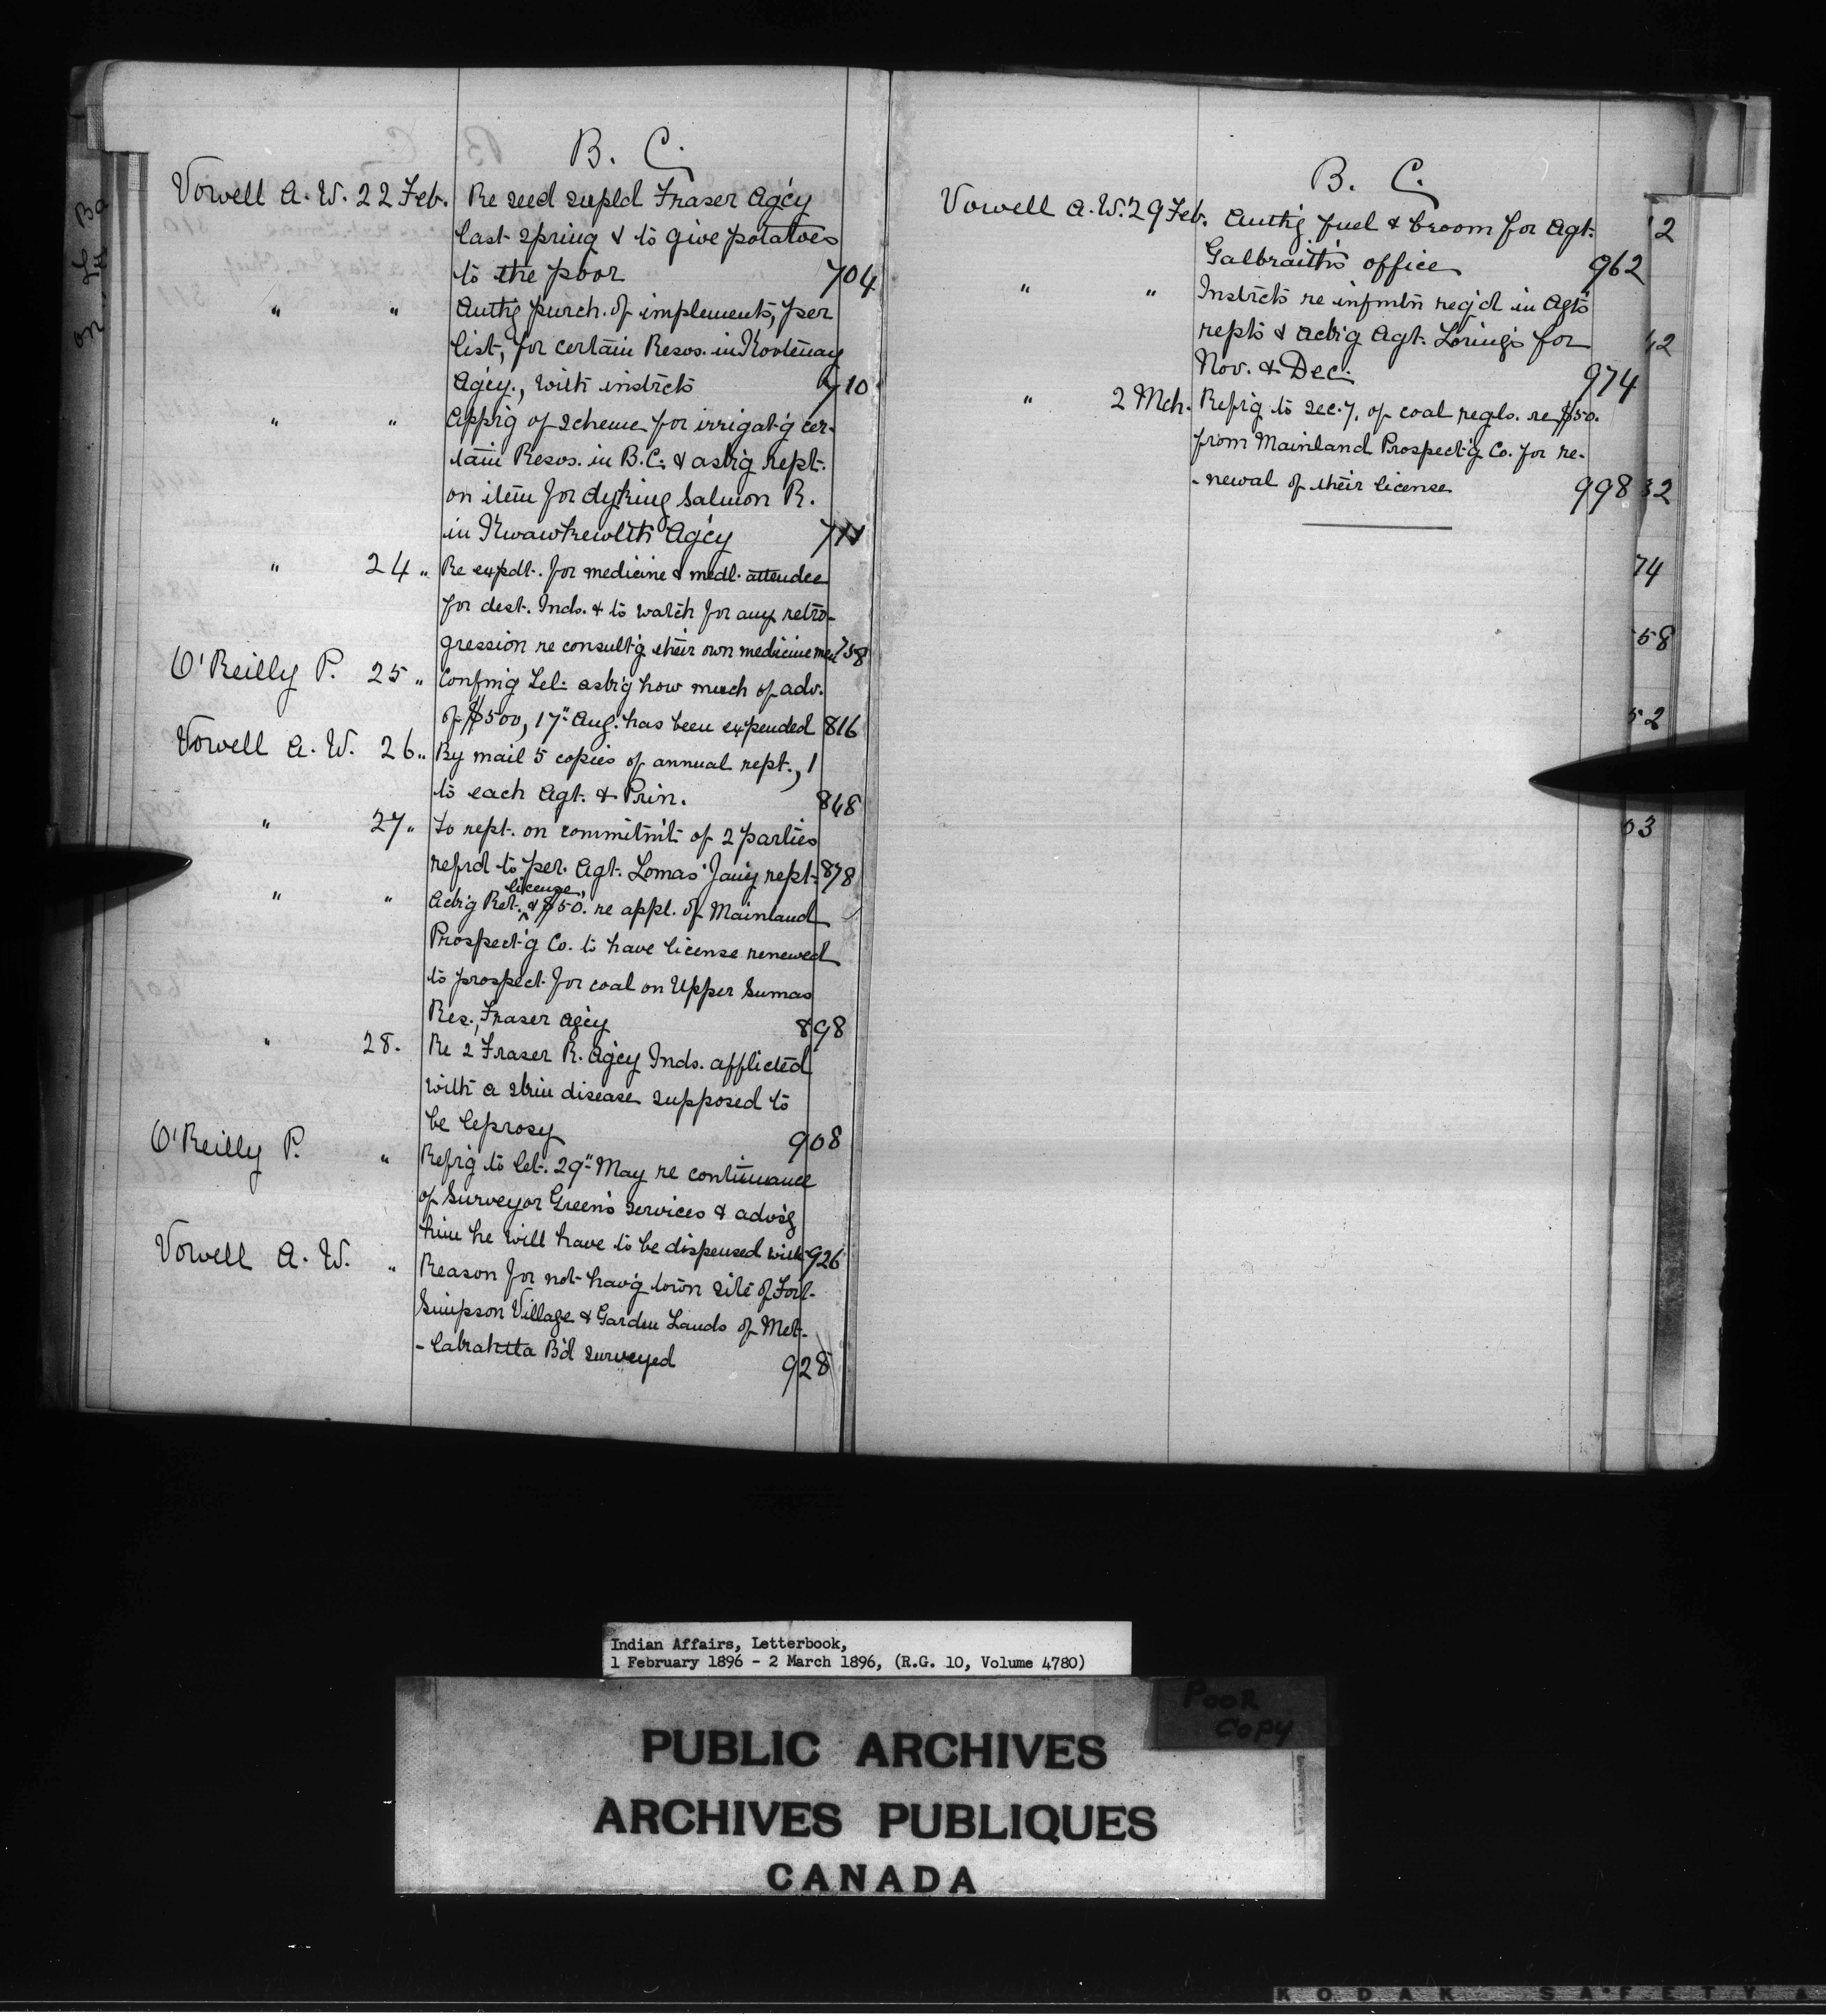 B. C.
Vowell A. W. 22 Feb. Re seed supld Fraser Ag'cy
last spring & to give potatoes
to the poor 704
" " Auth'g purch. of implements, per
list, for certain Resvs. in Kootenay
Ag'cy., with instrcts 710
" " App'r'g of scheme for irrigat'g cer-
tain Resvs. in B.C. & ask'g rept.
on item for dyking Salmon R.
in Kwawkewlth Ag'cy
" 24 " Re expdt. for medicine & medl. attendce
for dest. Inds. & to watch for any retro-
gression re consult'g their own medicine men 758
O'Reilly P. 25 " Confm'g tel. ask'g how much of adv.
of $500, 17" Aug. has been expended 816
Vowell A. W. 26 " By mail 5 copies of annual rept., 1
to each Agt. & Prin. 848
" 27 " To rept. on commitm't of 2 parties
refrd to per. Agt. Lomas' Jan'y rept. 878
license,
" " Ack'g Ret. & $50. re appl. of Mainland
Prospect'g Co. to have license renewed
to prospect for coal on Upper Sumas
Res., Fraser Ag'cy 898
" 28. Re 2 Fraser R. Ag'cy Inds. afflicted
with a skin disease supposed to
be leprosy 908
O'Reilly P. " Refr'g to let. 29" May re continuance
of Surveyor Green's services & advs'g
him he will have to be dispensed with 926
Vowell A. W. " Reason for not hav'g town site of Fort
Simpson Village & Garden Lands of Met-
-lakahtla B'd surveyed 928
B. C.
Vowell A. W. 29 Feb. Auth'g fuel & broom for Agt.
Galbraith's office 962
" " Instrcts re infmtn req'd in Agts'
repts & ack'g Agt. Loring's for
Nov. & Dec. 974
" 2 Mch. Refr'g to sec. 7, of coal regls. re $50.
from Mainland Prospect'g Co. for re-
-newal of their license 998
12
42
32
74
58
52
03
Indian Affairs, Letterbook,
1 February 1896 - 2 March 1896, (R.G. 10, Volume 4780)
POOR
COPY
PUBLIC ARCHIVES
ARCHIVES PUBLIQUES
CANADA
KODAK SAFETY A